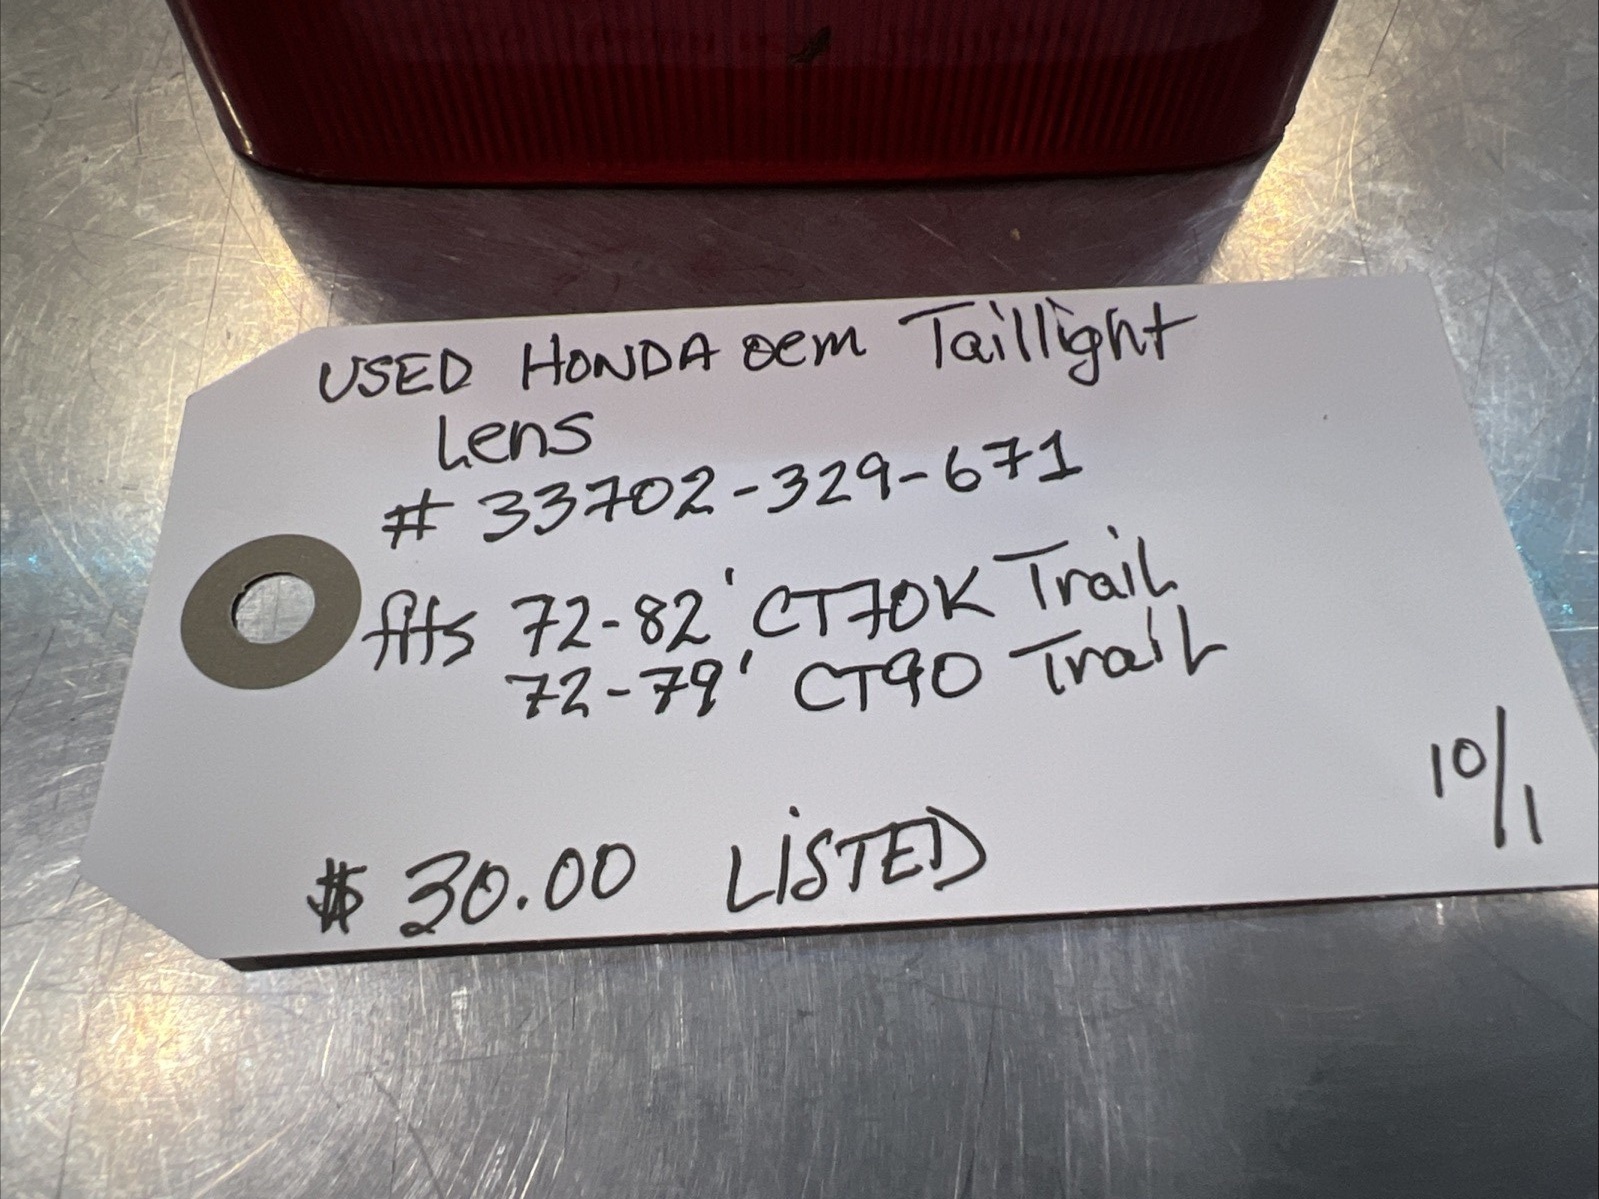 USED HONDA OEM Taillight
Lens
# 33702-329-671
fits 72-82' CT70K Trail
72-79' CT90 Trail
10/1
$ 30.00 LiSTED